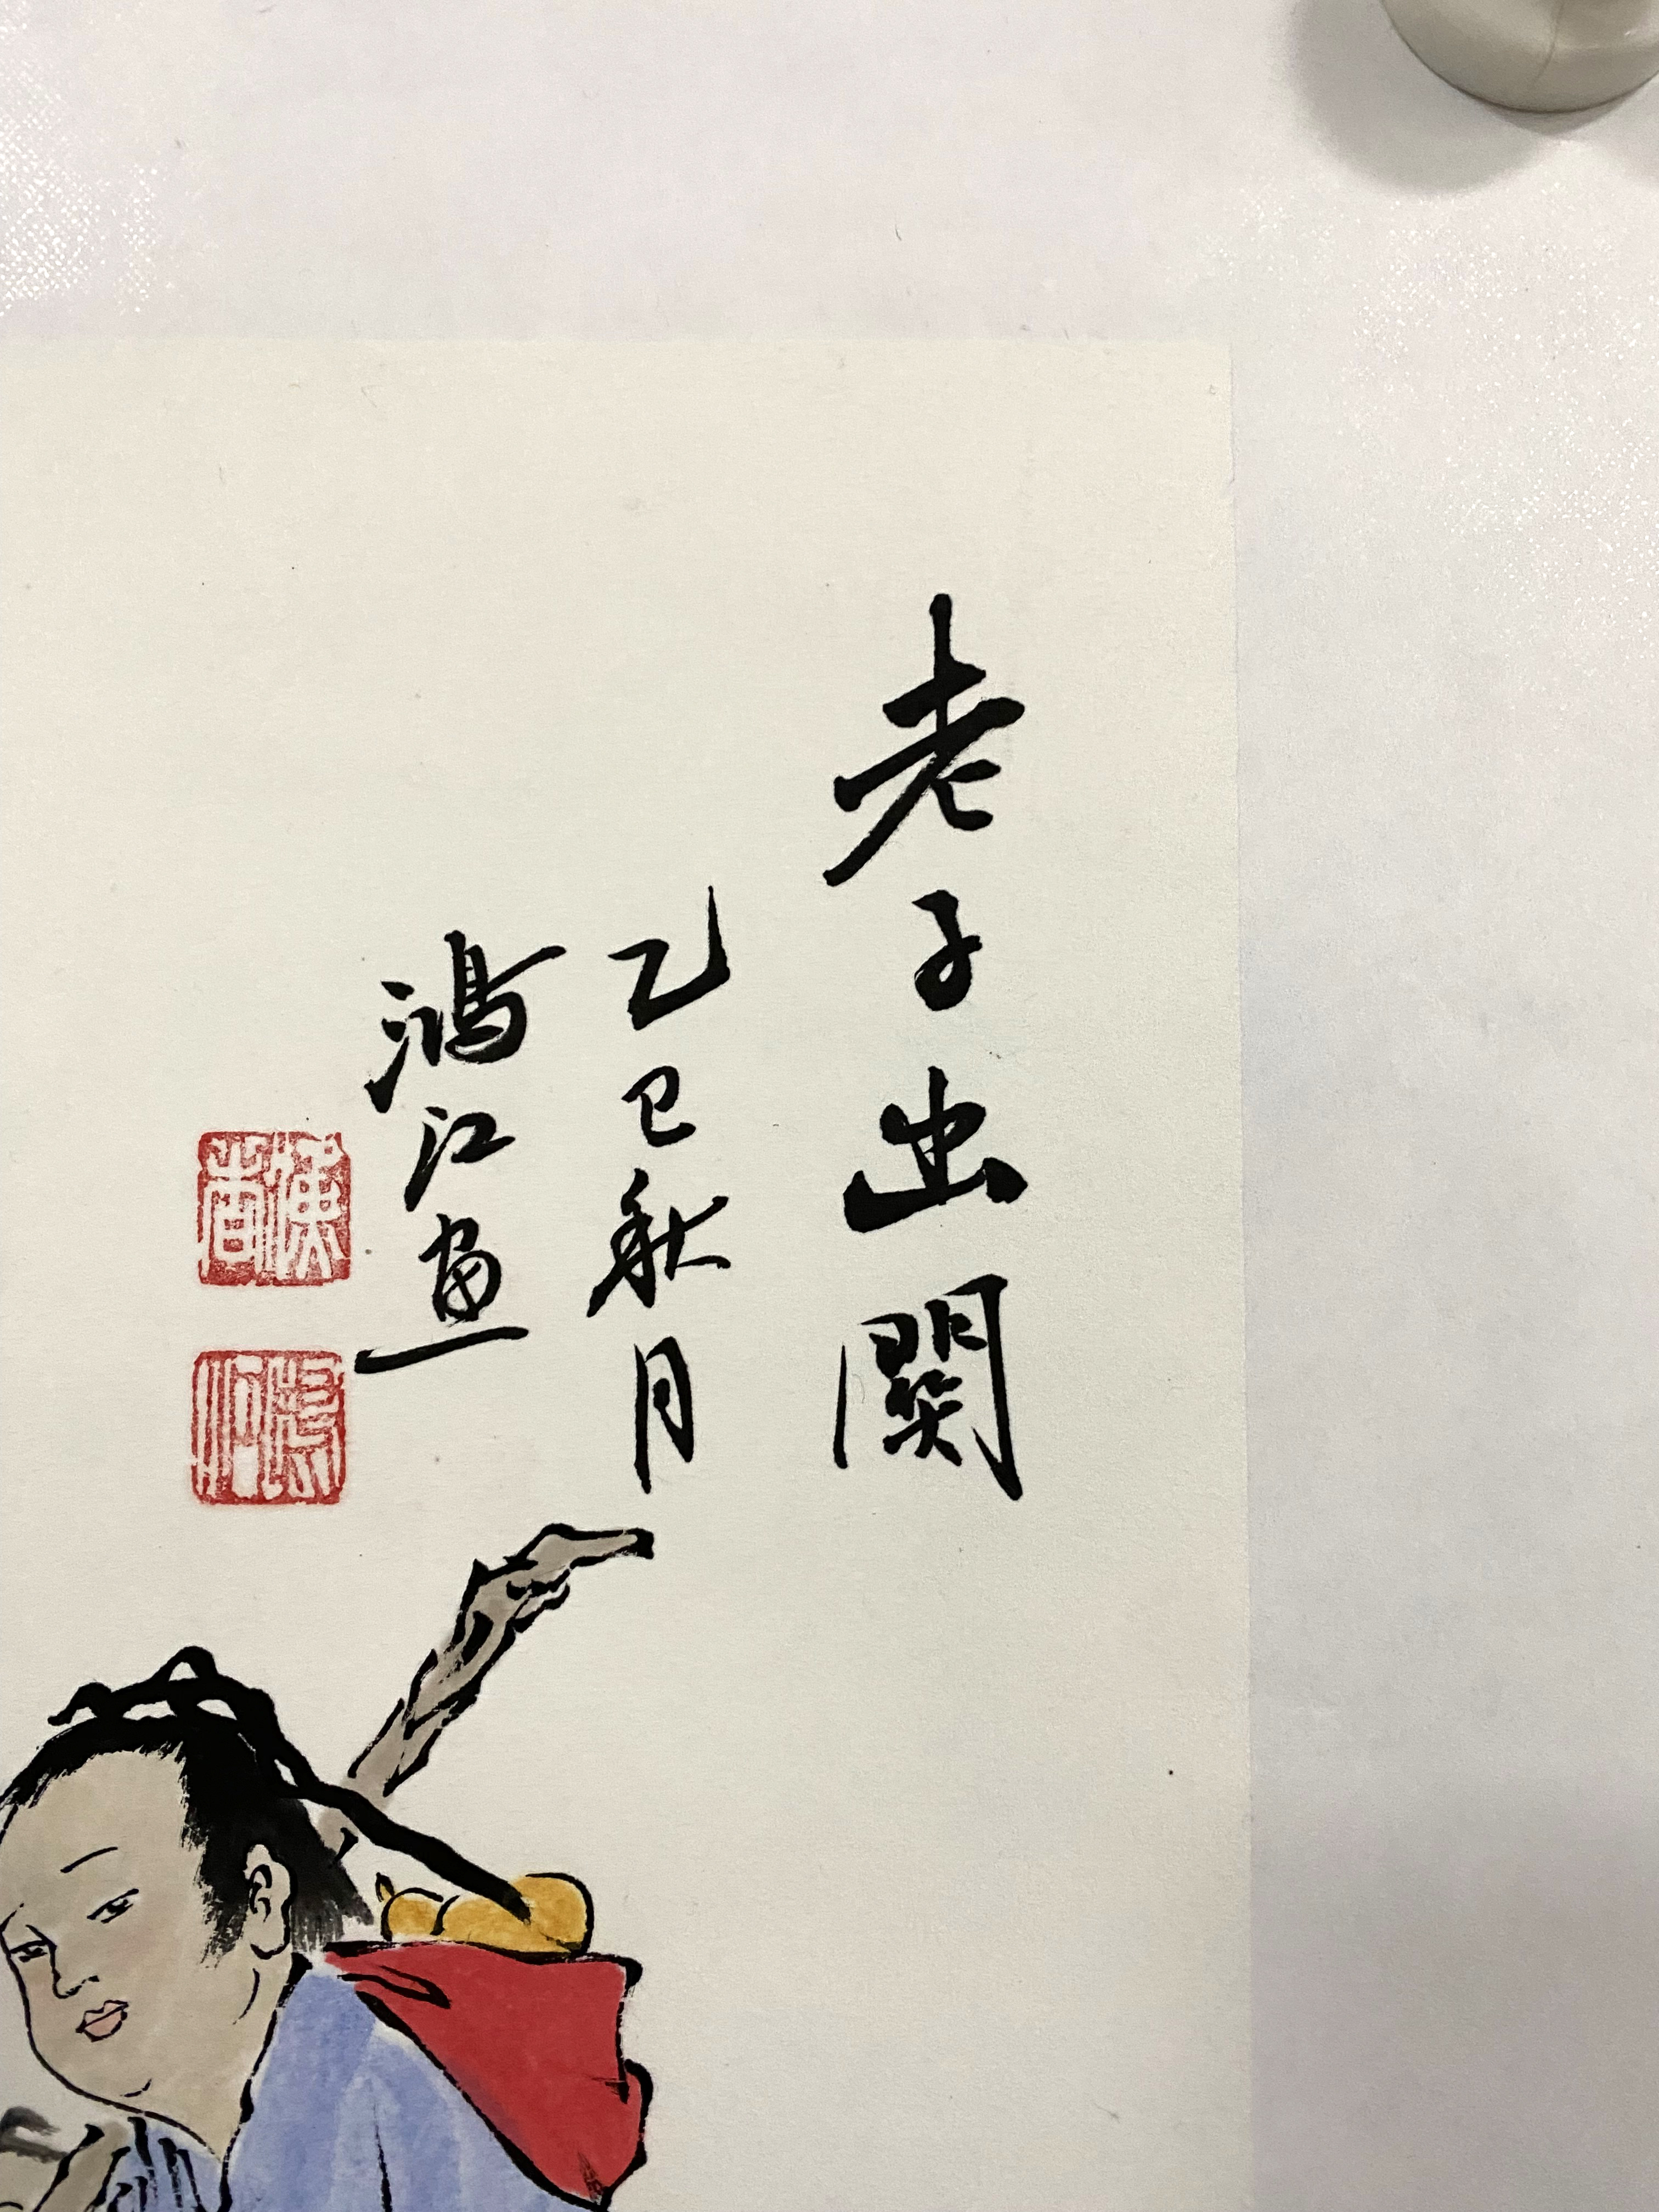 老子出關
乙巳秋月
鴻江畫